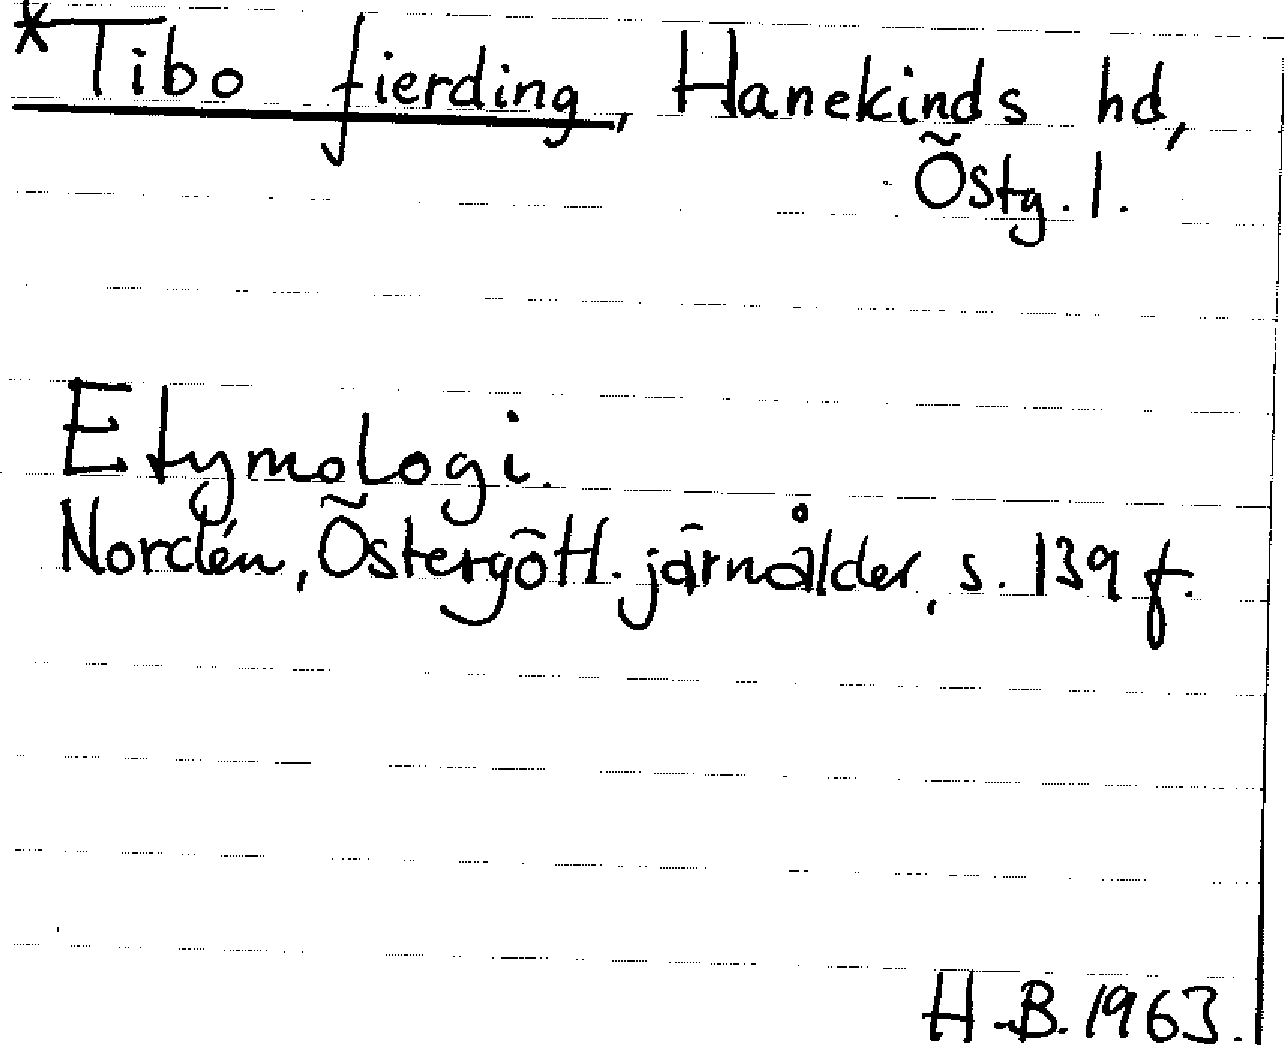 *Tibo fierding, Hanekinds hd,
Östg. l.
Etymologi.
Nordén, Östergötl. järnålder, s. 139 f.
H.B. 1963.